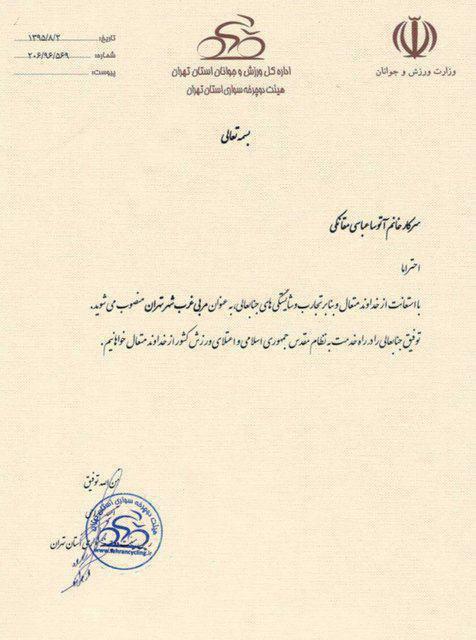 وزارت ورزش و جوانان
اداره کل ورزش و جوانان استان تهران
هیئت دوچرخه سواری استان تهران
تاریخ: ۱۳۹۵/۸/۲
شماره: ۲۰۶/۹۶/۵۶۹
پیوست:
بسمه تعالی
سرکار خانم آتوسا عباسی مقانکی
احتراما
با استعانت از خداوند متعال و بنابر تجارب و شایستگی های جنابعالی، به عنوان مربی غرب شهر تهران منصوب می شوید.
توفیق جنابعالی را در راه خدمت به نظام مقدس جمهوری اسلامی و اعتلای ورزش کشور از خداوند متعال خواهانیم.
من الله توفیق
استان تهران
هیئت دوچرخه سواری استان تهران
www.tehrancycling.ir